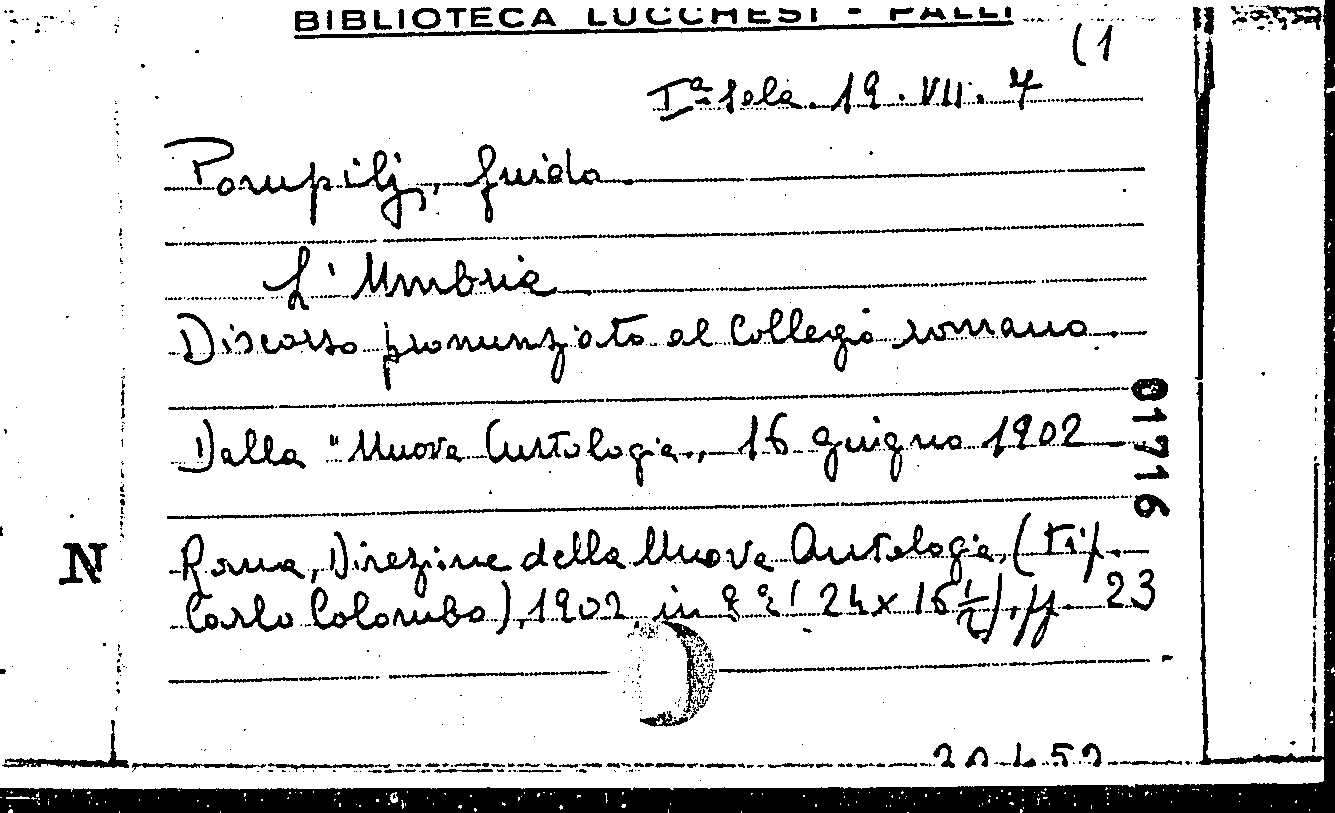 BIBLIOTECA LUCCHESI - PALLI
(1
Iª Sala. 19. VII. 7
Pompilj, Guido.
L'Umbria
Discorso pronunziato al Collegio romano.
Dalla "Nuova Antologia„ 16 giugno 1902
01716
N
Roma, Direzione della Nuova Antologia, (tip.
Carlo Colombo), 1902, in 8º (24 x 16 1/2), pp. 23